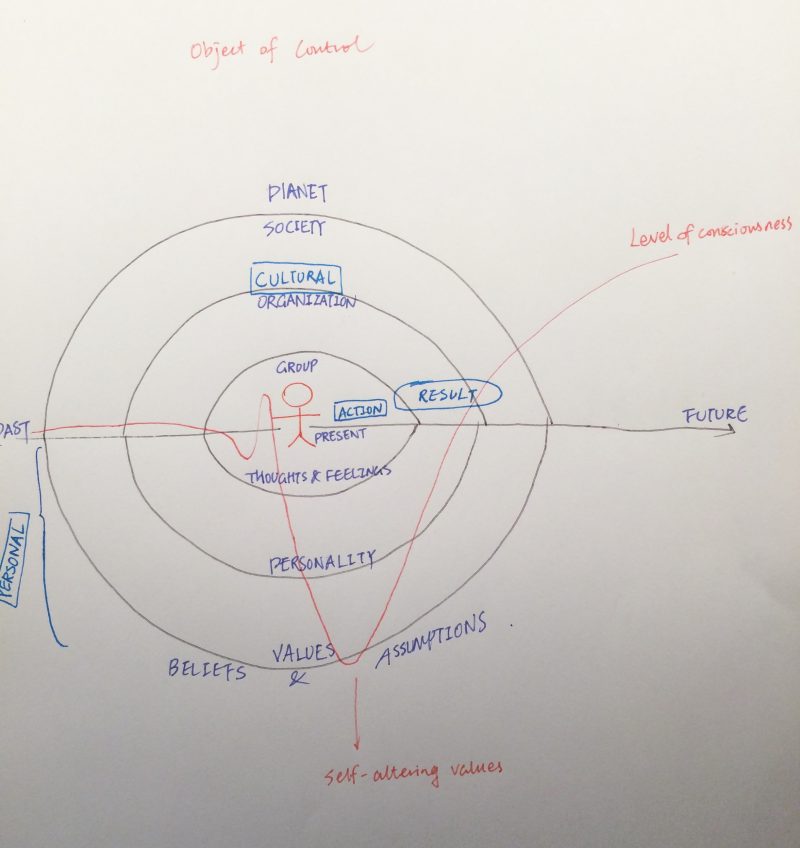 Object of Control
PLANET
SOCIETY
Level of consciousness
CULTURAL
ORGANIZATION
GROUP
ACTION
RESULT
PAST
PRESENT
FUTURE
THOUGHTS & FEELINGS
PERSONAL
PERSONALITY
BELIEFS VALUES & ASSUMPTIONS.
Self-altering values